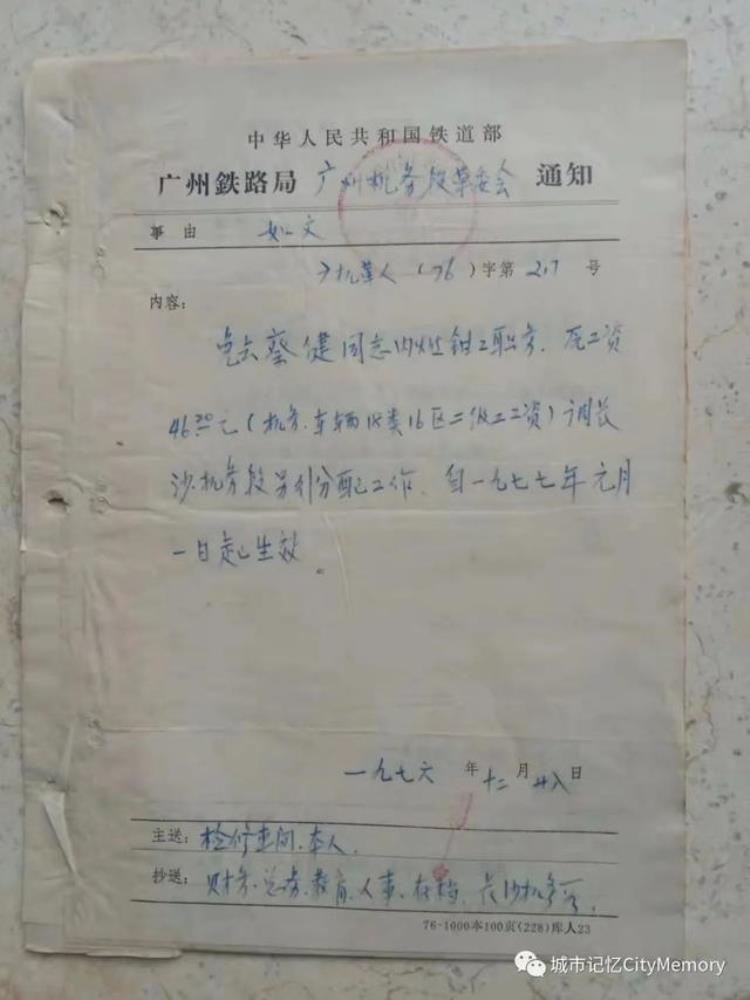 中华人民共和国铁道部
广州鉄路局 广州机务段革委会 通知
事由 如文
广机革人(76)字第217号
内容：
免去蔡健同志内燃钳工职务.原工资
46.20元(机务.车辆18类16区二级工工资)调长
沙机务段另行分配工作.自一九七七年元月
一日起生效。
一九七六年十二月廿八日
主送：检修车间.本人.
抄送：财务.总务.教育.人事.存档.长沙机务
76-1000本100页(228)库人23
城市记忆CityMemory